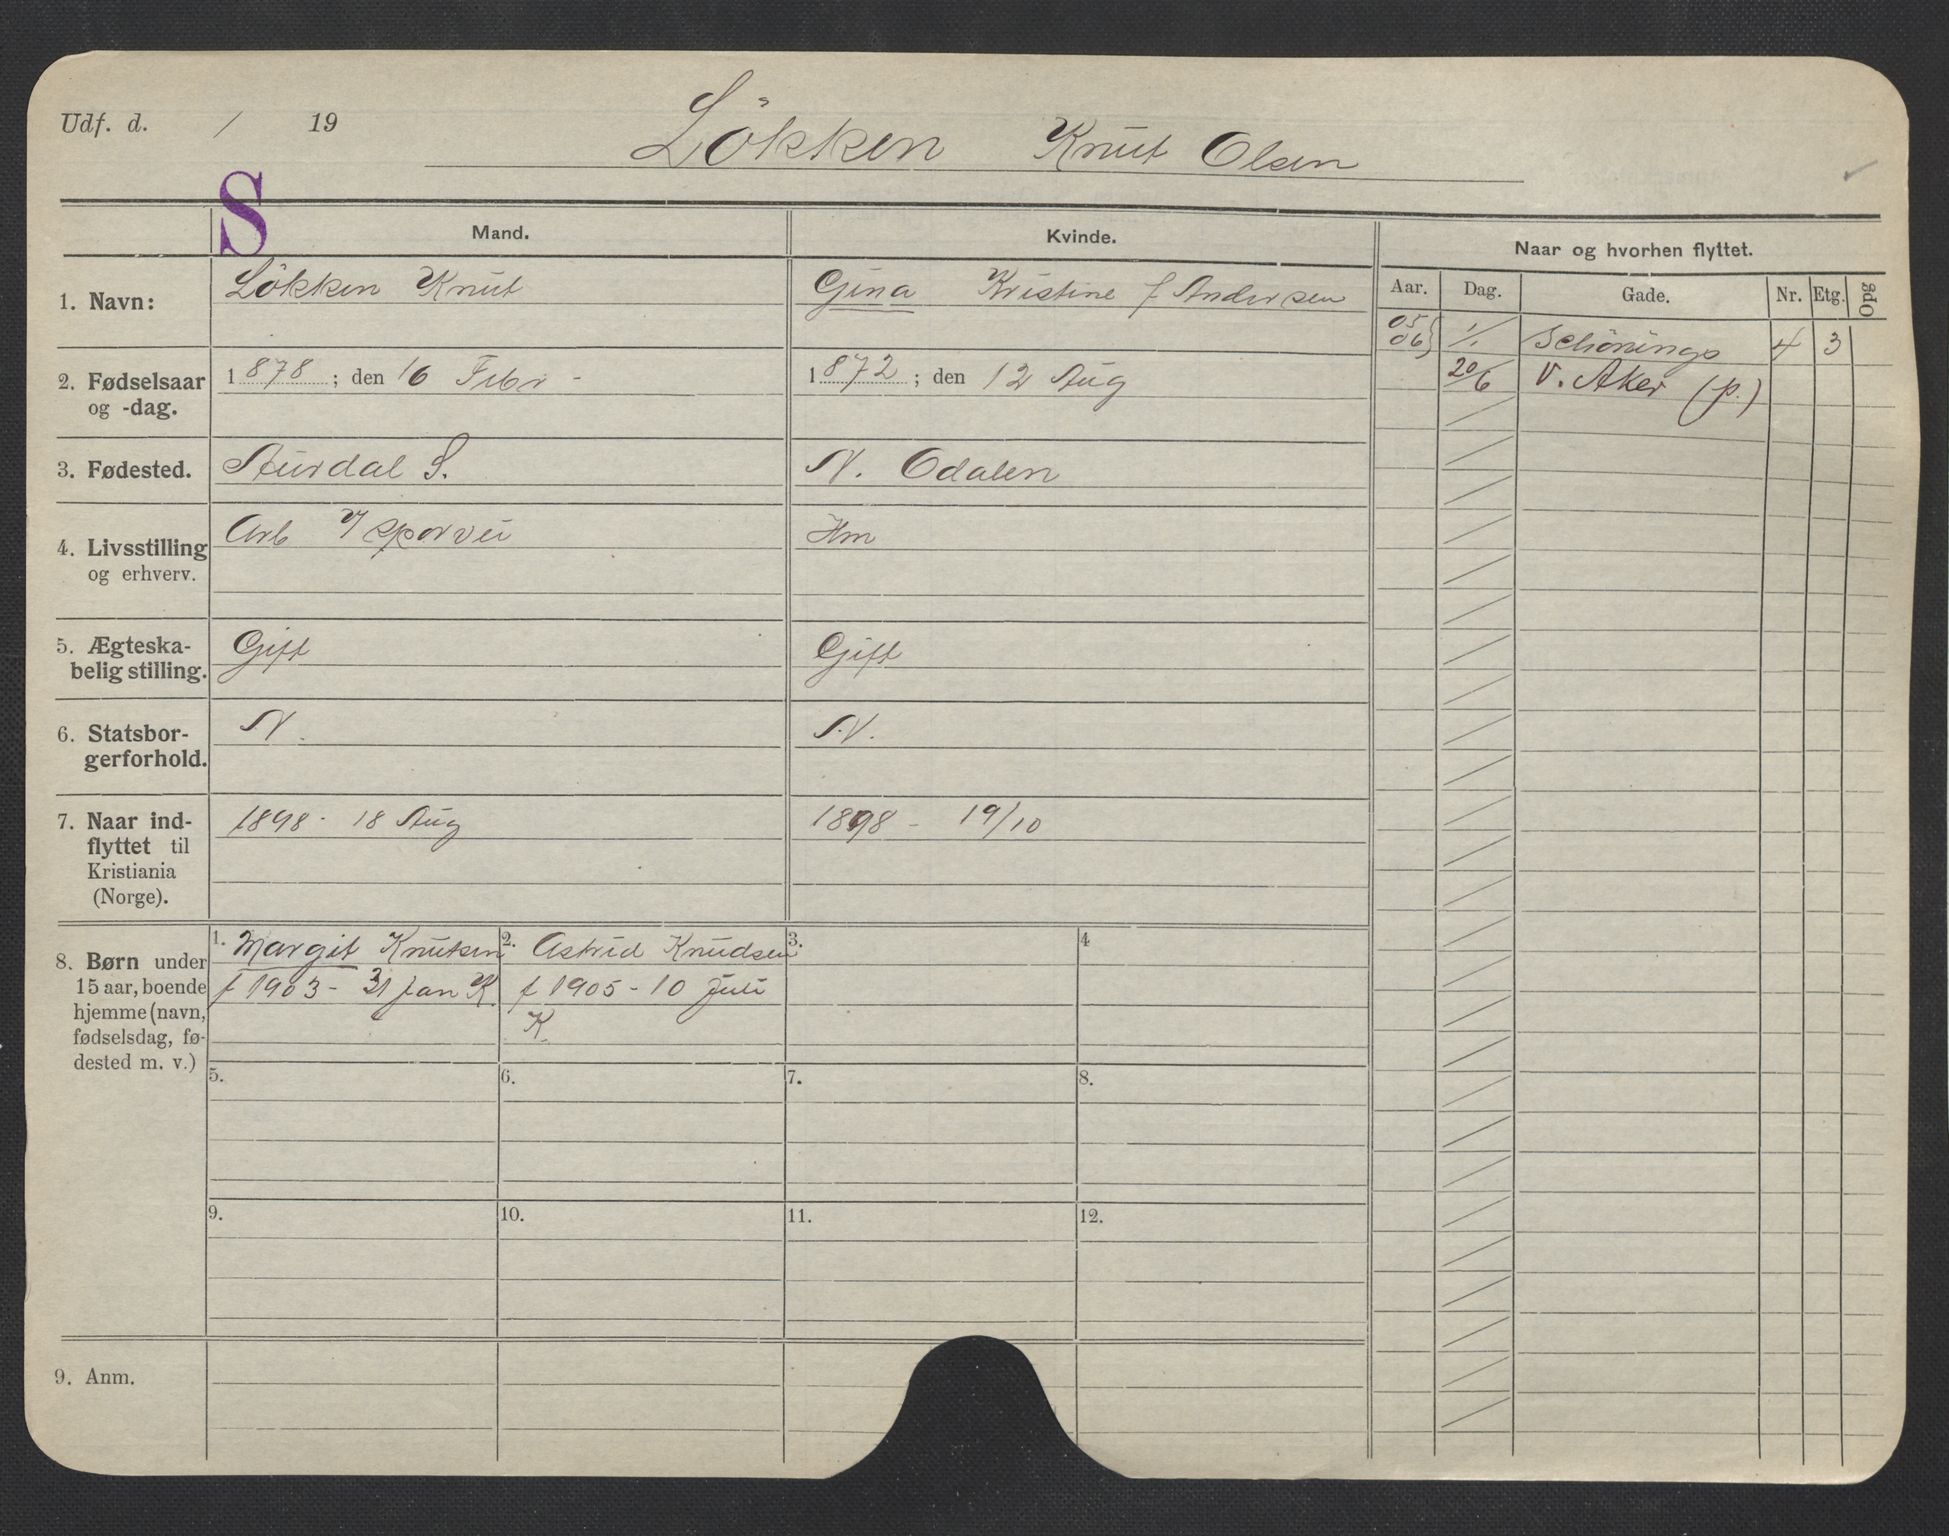 Udf. d. / 19
Lökken Knut Olsen
S
Mand.
Kvinde.
Naar og hvorhen flyttet.
Aar. Dag. Gade. Nr. Etg. Opg
1. Navn:
Lökken Knut
Gina Kristine f Andersen
05 06} 1/1 Schönings 4 3
20/6 V. Aker (p.)
2. Fødselsaar
og -dag.
1878; den 16 Febr -
1872; den 12 Aug
3. Fødested.
Aurdal S.
N. Odalen
4. Livsstilling
og erhverv.
Arb v/ sporvei
Hm
5. Ægteska-
belig stilling.
Gift
Gift
6. Statsbor-
gerforhold.
N.
N.
7. Naar ind-
flyttet til
Kristiania
(Norge).
1898 - 18 Aug
1898 - 19/10
8. Børn under
15 aar, boende
hjemme (navn,
fødselsdag, fø-
dested m. v.)
1. Margit Knutsen
f 1903 - 31 Jan K.
2. Astrid Knudsen
f 1905 - 10 Juli
K.
3.
4
5.
6.
7.
8.
9.
10.
11.
12.
9. Anm.